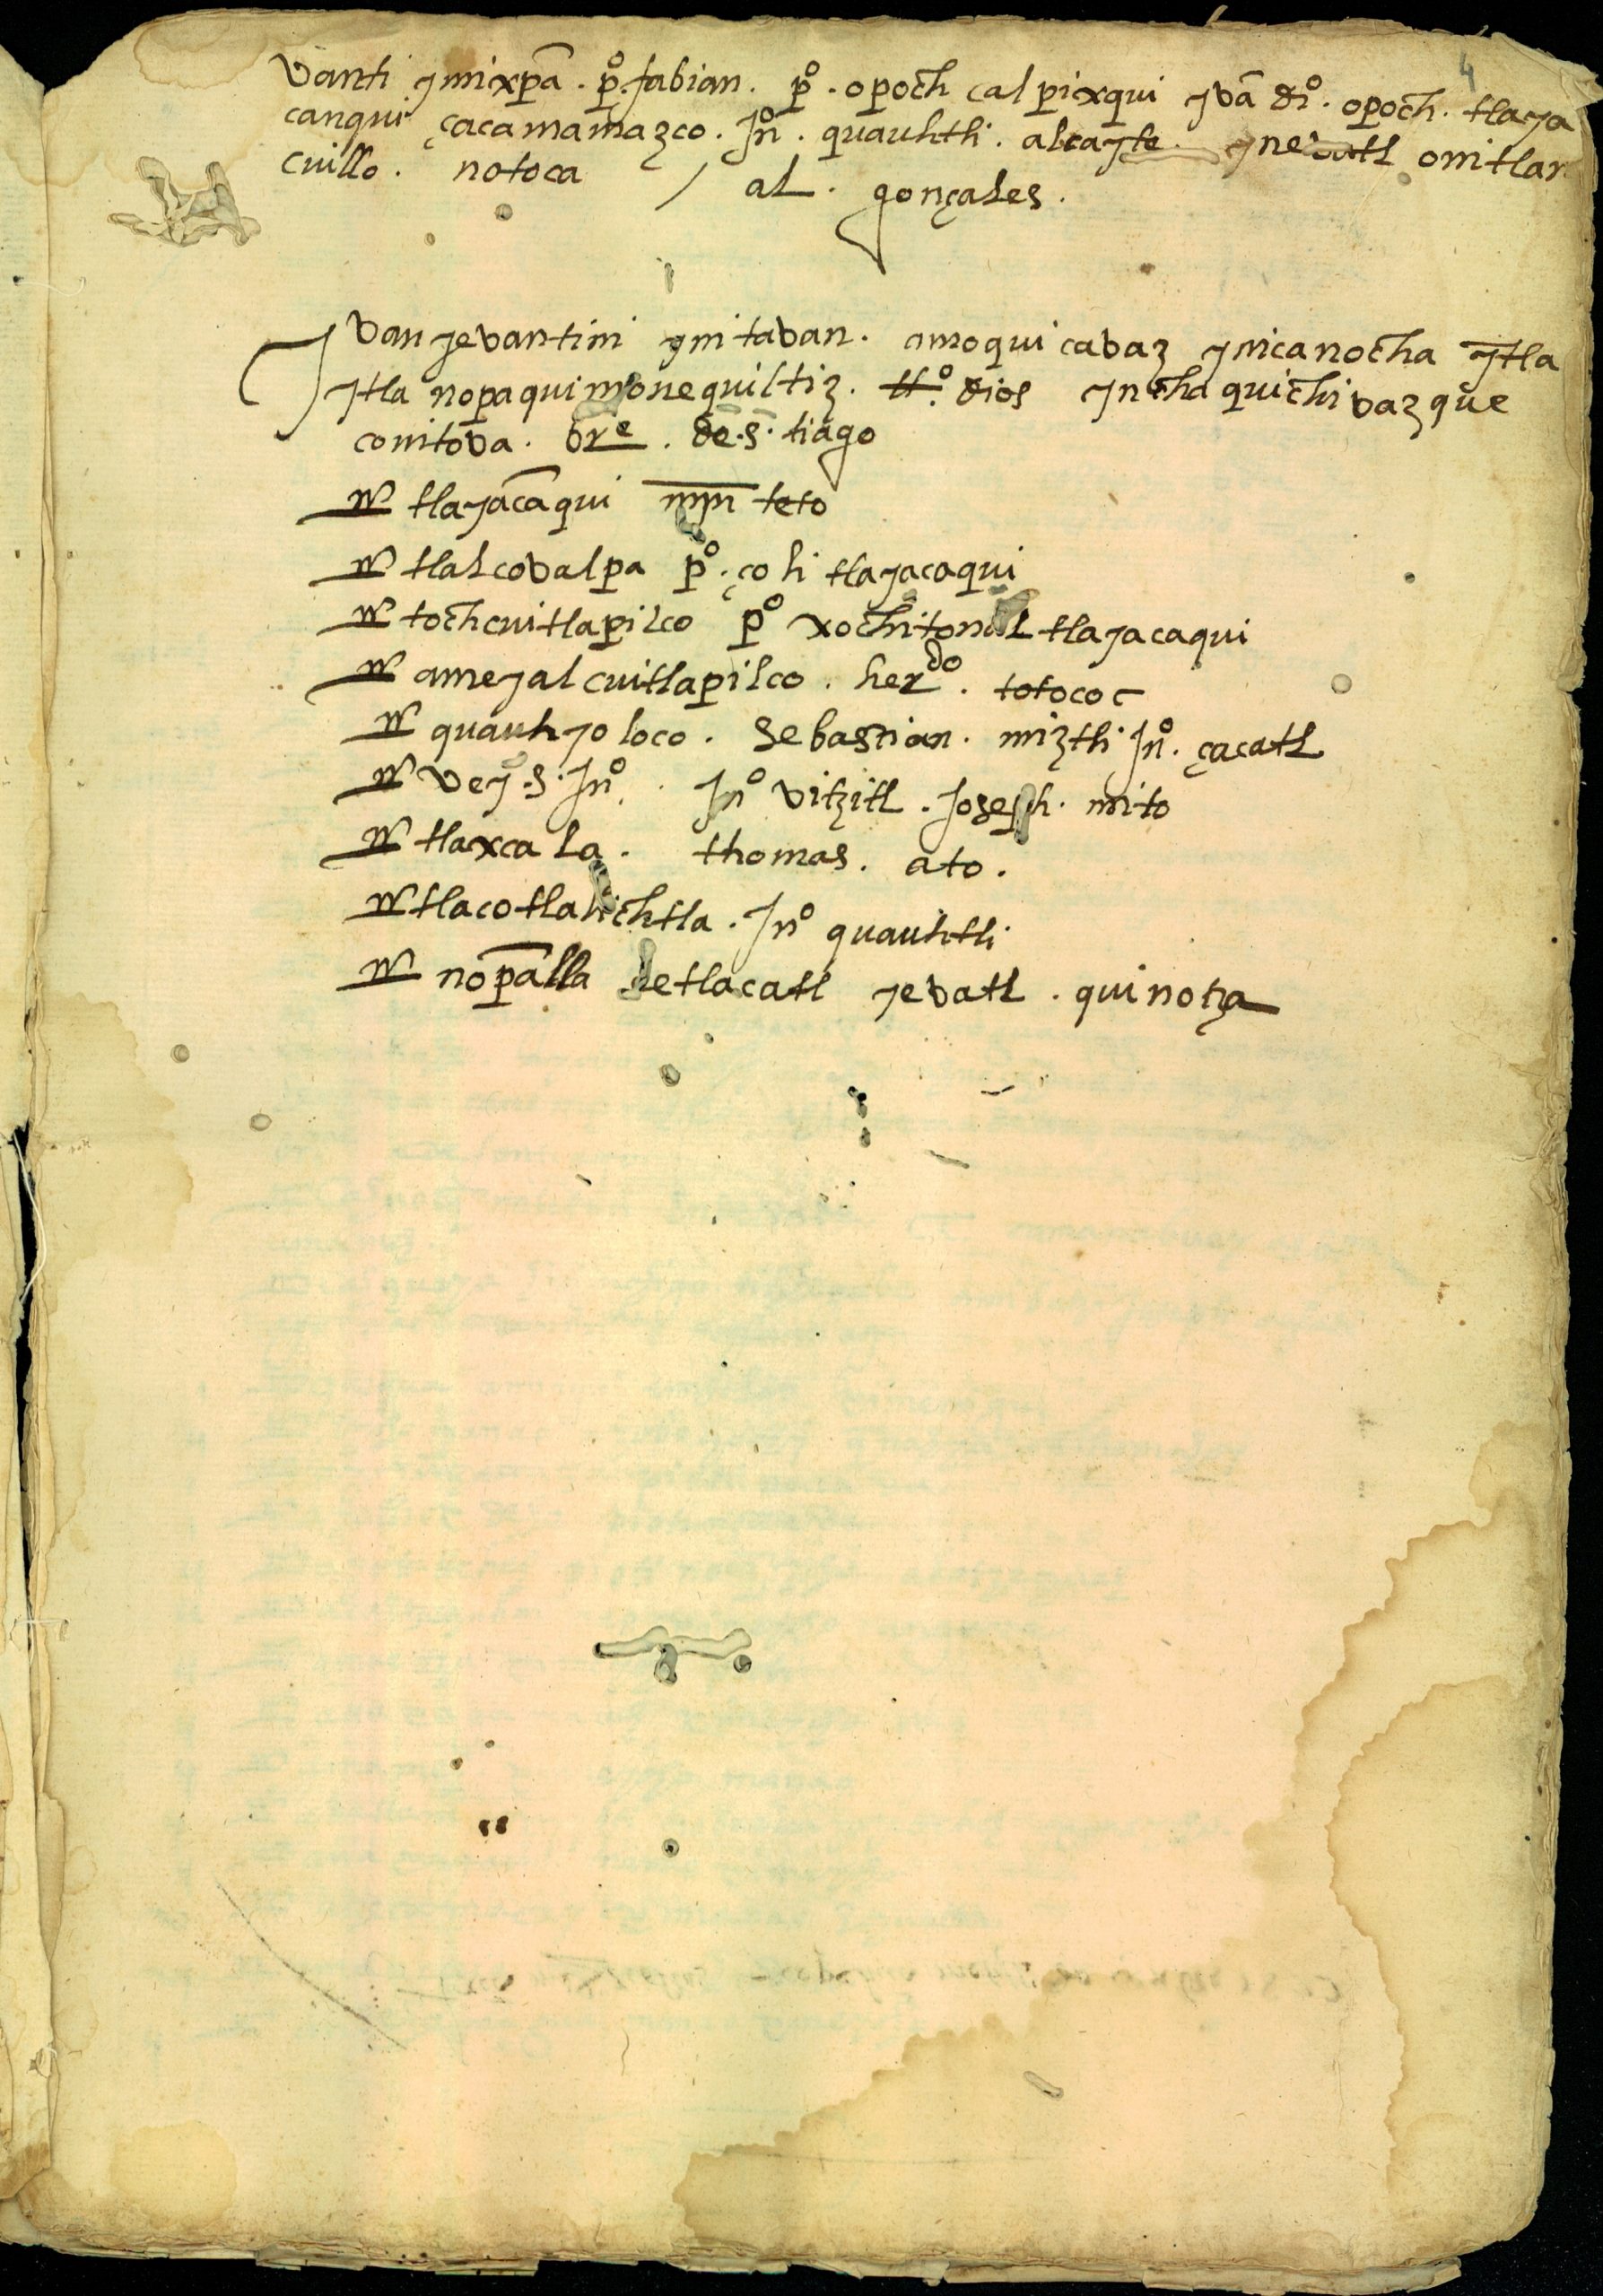 4
vanti ymixpā . p̊ . fabian . p̊ . opoch calpixqui yvā d̊i . opoch . tlaya
canqui çacamamazco . Jn̊ . quauhtli . alcayte . ynevatl onitlan
cuillo . notoca / al . gonçales .
Jvan yevantini ynitavan . amoquicavaz ynicanocha ytla
ytla nopaqui monequiltiz . tt̊o . dios yncha quichivazque
conitova . bre . de . s . tiago
tlayācaqui min teto
tlalcovalpa p̊ . çoli tlayacaqui
tochcuitlapilco p̊ xochitonal tlayacaqui
ameyalcuitlapilco . herdo . totococ
quauhyoloco . Sebastian . miztli Jn̊ . çacatl
vey . S . Jn̊ . Jn̊ vitzitl . Joseph . mito
tlaxcala . thomas . ato .
tlacotlalichtla . Jn̊ quauhtli
nopālla letlacatl yevatl . quinotza